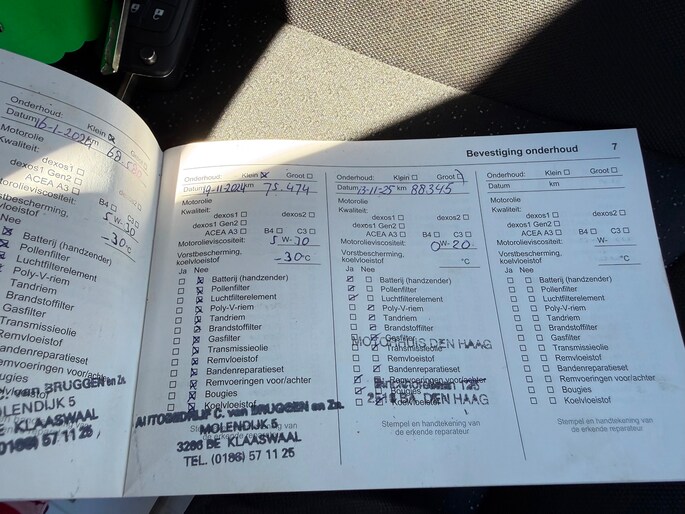 Onderhoud: Klein Groot
Datum 16-1-2024 km
Motorolie
Kwaliteit:
dexos1
dexos1 Gen2
ACEA A3 B4 C3
5 W-30
-30°C
Nee
Batterij (handzender)
Pollenfilter
Luchtfilterelement
Poly-V-riem
Tandriem
Brandstoffilter
Gasfilter
Transmissieolie
Remvloeistof
Bandenreparatieset
Remvoeringen voor/achter
van BRUGGEN en Zn.
MOLENDIJK 5
KLAASWAAL
(0186) 57 11 25
Bevestiging onderhoud 7
Onderhoud: Klein Groot
Datum 19-11-2024 km 75.474
Motorolie
Kwaliteit:
dexos1 dexos2
dexos1 Gen2
ACEA A3 B4 C3
Motorolieviscositeit: 5 W-30
Vorstbescherming,
koelvloeistof -30°C
Ja Nee
Batterij (handzender)
Pollenfilter
Luchtfilterelement
Poly-V-riem
Tandriem
Brandstoffilter
Gasfilter
Transmissieolie
Remvloeistof
Bandenreparatieset
Remvoeringen voor/achter
Bougies
Koelvloeistof
AUTOBEDRIJF C. van BRUGGEN en Zn.
MOLENDIJK 5
3286 BE KLAASWAAL
TEL. (0186) 57 11 25
Onderhoud: Klein Groot
Datum 13-11-25 km 88345
Motorolie
Kwaliteit:
dexos1 dexos2
dexos1 Gen2
ACEA A3 B4 C3
Motorolieviscositeit: 0W-20
Vorstbescherming,
koelvloeistof °C
Ja Nee
Batterij (handzender)
Pollenfilter
Luchtfilterelement
Poly-V-riem
Tandriem
Brandstoffilter
Gasfilter
MOTORHUIS DEN HAAG
Transmissieolie
Remvloeistof
Bandenreparatieset
Remvoeringen voor/achter
Bougies
DEN HAAG
Koelvloeistof
Stempel en handtekening van
de erkende reparateur
Onderhoud: Klein Groot
Datum km
Motorolie
Kwaliteit:
dexos1 dexos2
dexos1 Gen2
ACEA A3 B4 C3
Motorolieviscositeit: W-
Vorstbescherming,
koelvloeistof °C
Ja Nee
Batterij (handzender)
Pollenfilter
Luchtfilterelement
Poly-V-riem
Tandriem
Brandstoffilter
Gasfilter
Transmissieolie
Remvloeistof
Bandenreparatieset
Remvoeringen voor/achter
Bougies
Koelvloeistof
Stempel en handtekening van
de erkende reparateur